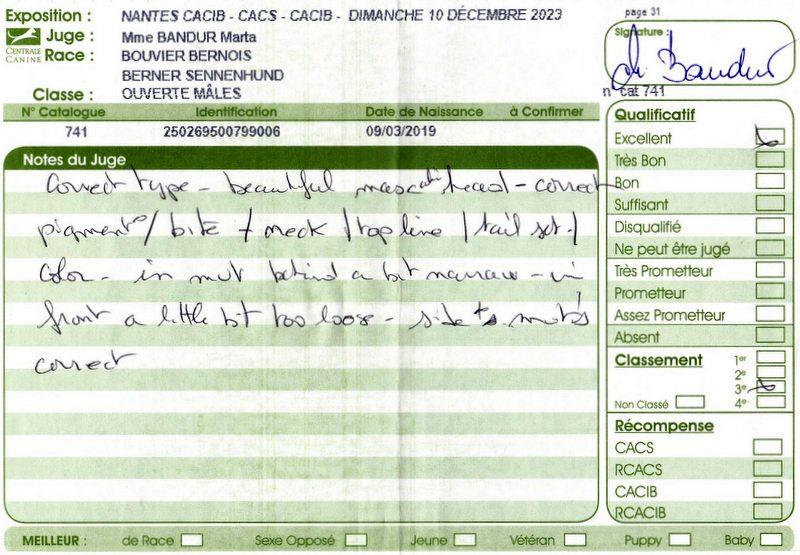 Exposition : NANTES CACIB - CACS - CACIB - DIMANCHE 10 DÉCEMBRE 2023
page 31
CENTRALE CANINE
Juge : Mme BANDUR Marta
Signature :
Race : BOUVIER BERNOIS
BERNER SENNENHUND
Classe : OUVERTE MÂLES
n° cat 741
N° Catalogue Identification Date de Naissance à Confirmer
741 250269500799006 09/03/2019
Notes du Juge
Correct type - beautiful head - correct
bite + neck / top line / tail set /
color - in behind a bit narrow - in
front a little bit too loose - side
correct
Qualificatif
Excellent
Très Bon
Bon
Suffisant
Disqualifié
Ne peut être jugé
Très Prometteur
Prometteur
Assez Prometteur
Absent
Classement 1er
2e
3e
Non Classé 4e
Récompense
CACS
RCACS
CACIB
RCACIB
MEILLEUR : de Race Sexe Opposé Jeune Vétéran Puppy Baby